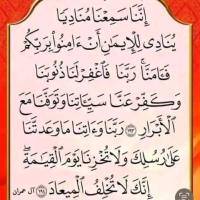 إِنَّنَا سَمِعْنَا مُنَادِيًا
يُنَادِى لِلْإِيمَٰنِ أَنْ ءَامِنُوا۟ بِرَبِّكُمْ
فَـَٔامَنَّا ۚ رَبَّنَا فَٱغْفِرْ لَنَا ذُنُوبَنَا
وَكَفِّرْ عَنَّا سَيِّـَٔاتِنَا وَتَوَفَّنَا مَعَ
ٱلْأَبْرَارِ ١٩٣ رَبَّنَا وَءَاتِنَا مَا وَعَدتَّنَا
عَلَىٰ رُسُلِكَ وَلَا تُخْزِنَا يَوْمَ ٱلْقِيَٰمَةِ ۗ
إِنَّكَ لَا تُخْلِفُ ٱلْمِيعَادَ ١٩٤ آل عمران